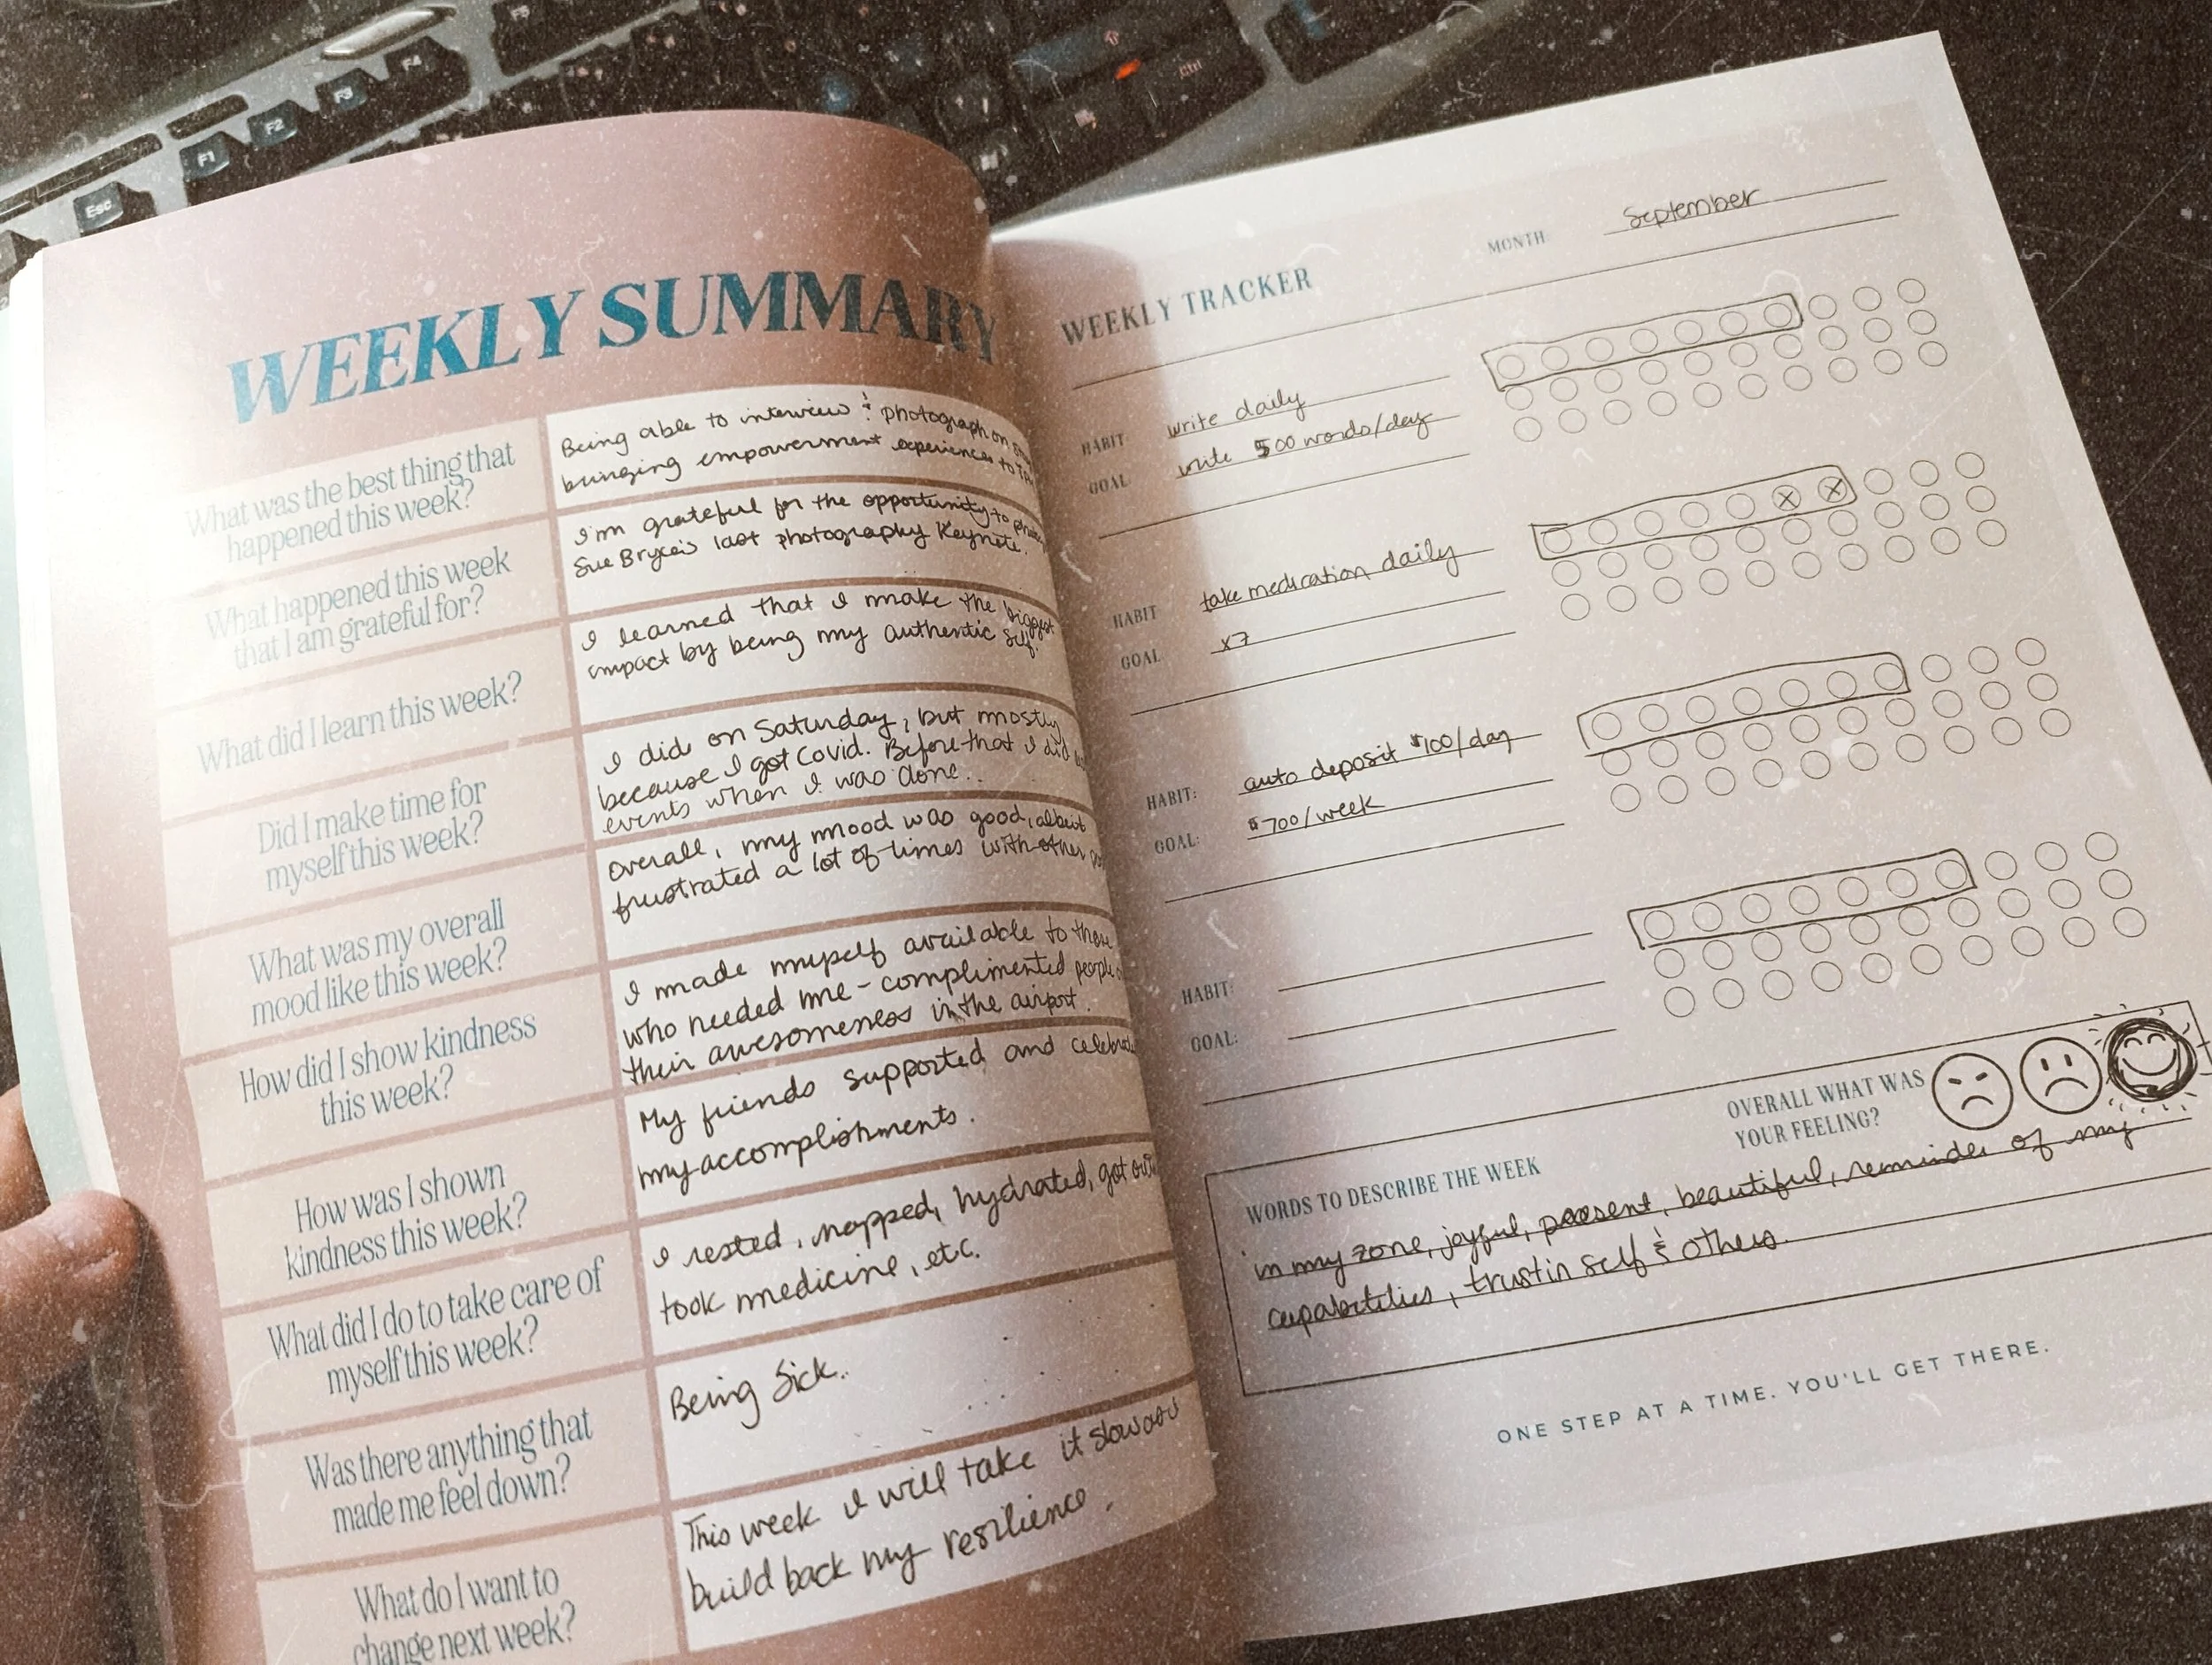 Esc
F1
F2
F3
F4
F5
Ctrl
WEEKLY SUMMARY
What was the best thing that
happened this week?
Being able to interview & photograph on
bringing empowerment experiences to
What happened this week
that I am grateful for?
I'm grateful for the opportunity to
Sue Bryce's last photography Keynote.
What did I learn this week?
I learned that I make the biggest
impact by being my authentic self.
Did I make time for
myself this week?
I did on Saturday, but mostly
because I got Covid. Before that I did
events when I was done..
What was my overall
mood like this week?
Overall, my mood was good, albeit
frustrated a lot of times with other
How did I show kindness
this week?
I made myself available to those
who needed me - complimented people
their awesomeness in the airport.
How was I shown
kindness this week?
My friends supported and
my accomplishments.
What did I do to take care of
myself this week?
I rested, napped, hydrated, got
took medicine, etc.
Was there anything that
made me feel down?
Being Sick..
What do I want to
change next week?
This week I will take it slow
build back my resilience.
MONTH: September
WEEKLY TRACKER
HABIT: write daily
GOAL: write 500 words/day
HABIT: take medication daily
GOAL: x7
HABIT: auto deposit $100/day
GOAL: $700/week
HABIT:
GOAL:
OVERALL WHAT WAS
YOUR FEELING?
WORDS TO DESCRIBE THE WEEK
in my zone, joyful, present, beautiful, reminder of my
capabilities, trust in self & others.
ONE STEP AT A TIME. YOU'LL GET THERE.